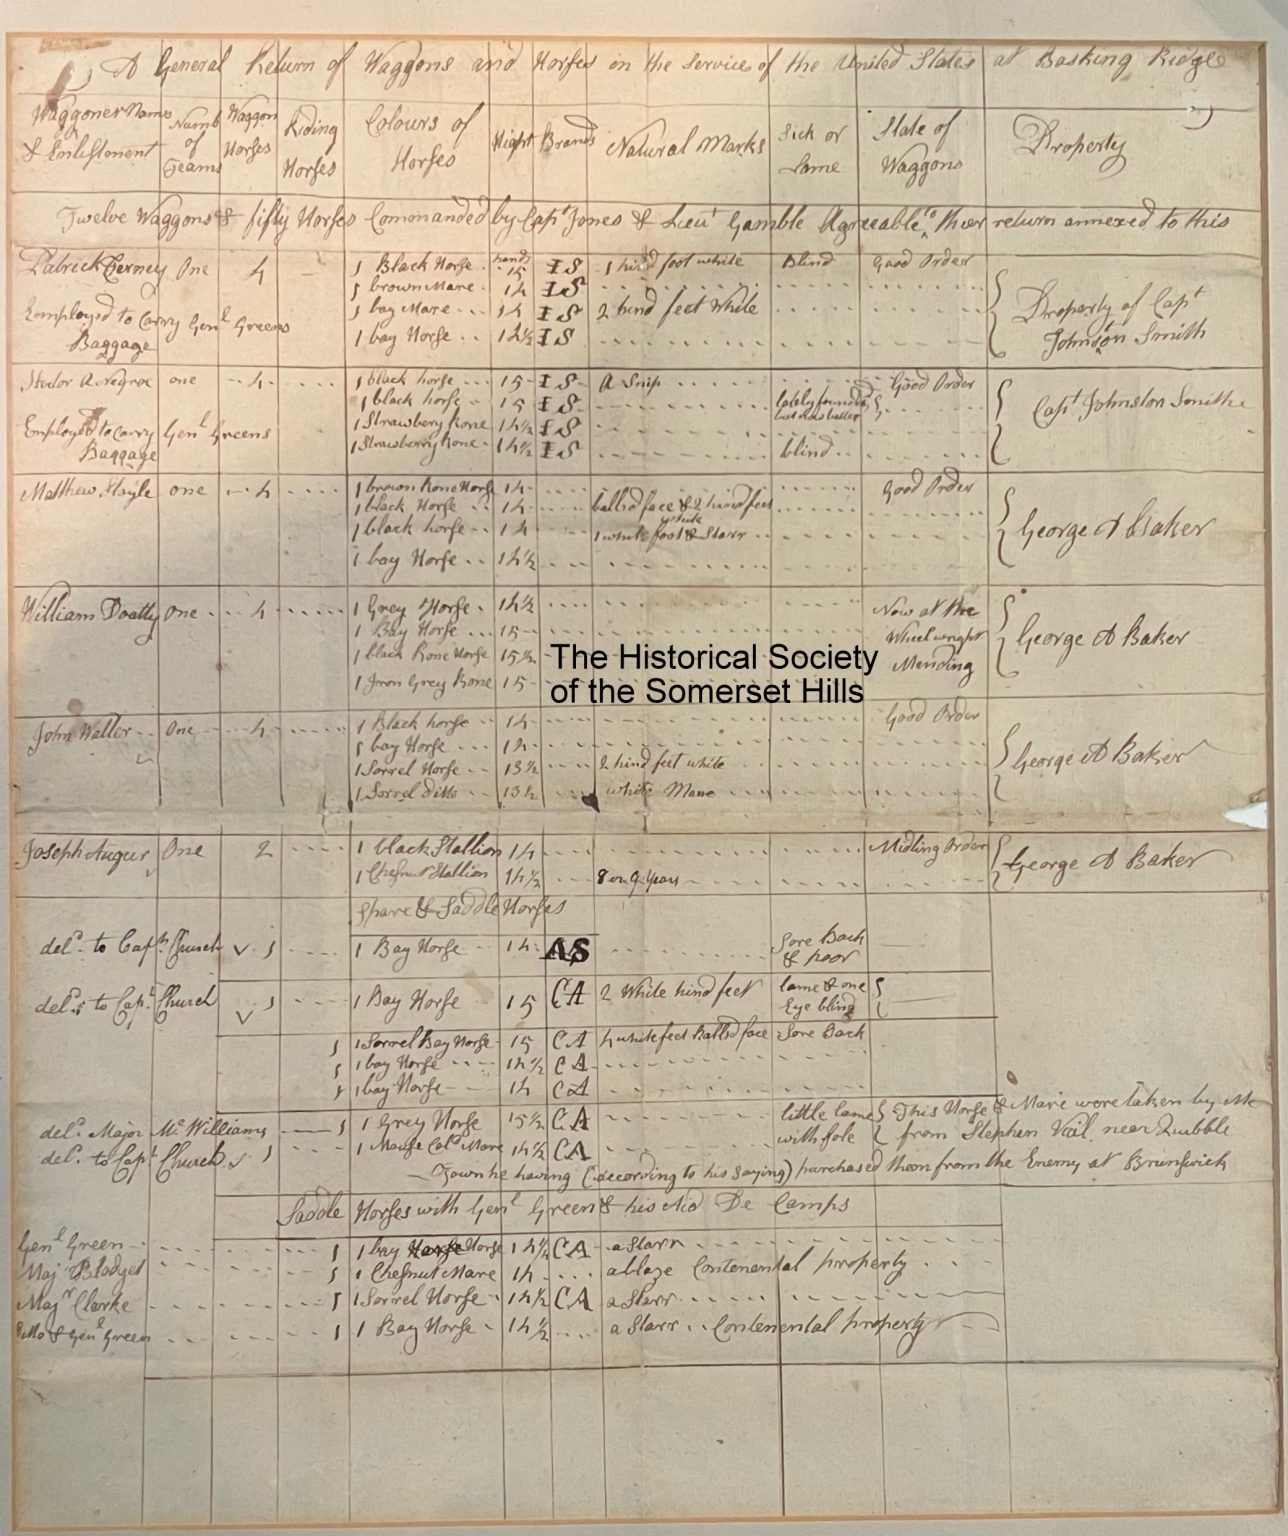 A General Return of Waggons and Horses in the Service of the United States at Basking Ridge
Waggoner Names & Enlistment | Numb of Teams | Waggon Horses | Riding Horses | Colours of Horses | Hight | Brands | Natural Marks | Sick or Lame | State of Waggons | Property
Twelve Waggons & fifty Horses Commanded by Capt Jones & Lieut Gamble Agreeable to their return annexed to this
Patrick One 4 1 Black Horse hands 15 IS 1 hind foot white Blind Good Order
1 brown Mare 14 IS
Employed to Carry Genl Greens 1 bay Mare 14 IS 2 hind feet White Property of Capt
Baggage 1 bay Horse IS Johnston Smith
A Negroe one 4 1 black horse 15 IS A Snip Good Order
1 black horse 15 IS lately but now better Capt Johnston Smith
Employed to Carry Genl Greens 1 Strawbery Rone 14½ IS
Baggage 1 Strawberry Rone 14½ IS blind
Matthew one 4 1 brown Rone Horse 14 Good Order
1 black Horse 14 balled face & 2 hind feet white
1 black horse 14 1 white foot & Starr George A Baker
1 bay Horse 14½
William One 4 1 Grey Horse 14½ Now at the
1 Bay Horse 15 Wheelwright George A Baker
1 black Rone Horse 15½ Mending
1 Iron Grey Rone 15
John Waller One 4 1 Black horse 14 Good Order
1 bay Horse 14
1 Sorrel Horse 13½ 2 hind feet white George A Baker
1 Sorrel ditto 13½ white Mane
The Historical Society
of the Somerset Hills
Joseph Augur One 2 1 black Stallion 14 Midling Order George A Baker
1 Chesnut Stallion 14½ 8 or 9 Years
Spare & Saddle Horses
deld. to Capt. Church 1 1 Bay Horse 14 AS Sore Back & poor
deld. to Capt. Church 1 1 Bay Horse 15 CA 2 White hind feet lame & one Eye blind
1 1 Sorrel Bay Horse 15 CA 4 white feet balled face Sore Back
1 1 bay Horse 14½ CA
1 1 bay Horse 14 CA
deld. Major Mc Williams 1 1 Grey Horse 15½ CA little lame This Horse & Mare were taken by Me
deld. to Capt Church 1 1 Mouse Cold. Mare 14½ CA with fole from Stephen Vail, near Quibble
Town he having (according to his saying) purchased them from the Enemy at Brunswick
Saddle Horses with Genl Green & his Aid De Camps
Genl Green 1 1 bay Horse 14½ CA a Starr
Majr Blodget 1 1 Chesnut Mare 14 a blaze Contenental property
Majr Clarke 1 1 Sorrel Horse 14½ CA a Starr
Ditto & Genl Green 1 1 Bay Horse 14½ a Starr Contenental property